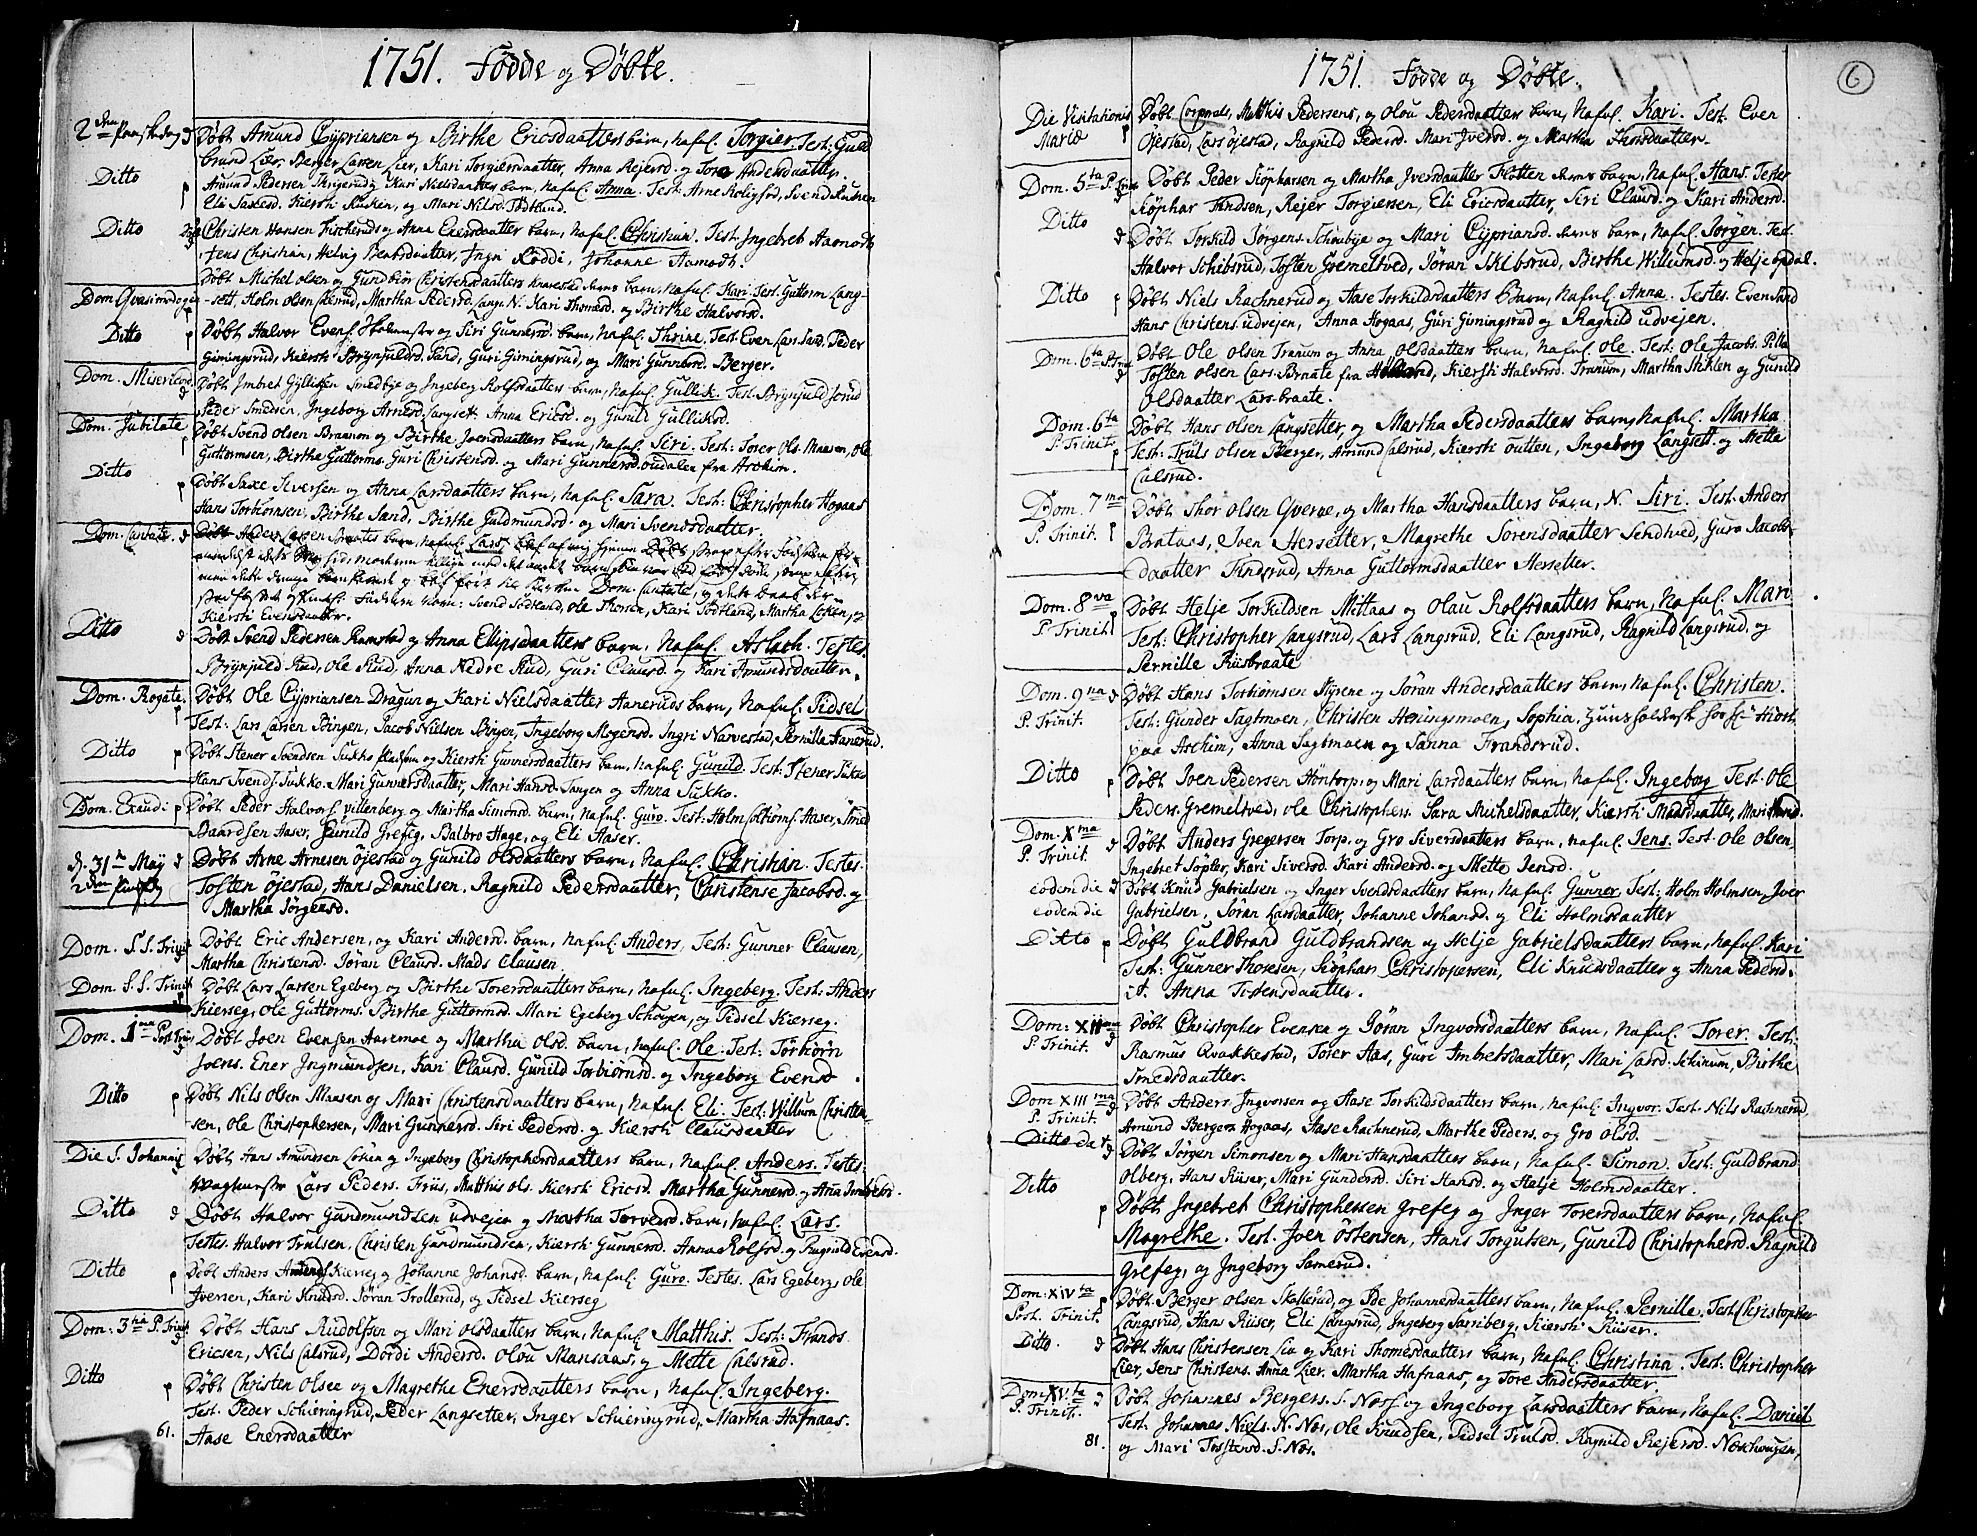 1751. Fødde og Døbte.
2den Paaskedag d Døbt Amund Cypriensen og Birthe Ericsdaatters barn, Nafnl. Torgier. Test: Guld
brand Lier, Berger Larsen Lier, Kari Torgiersdaatter, Anna Rejersd. og Tore Andersdaatter.
Ditto p Amund Pedersen Thrygerud og Kari Nielsdaatters barn, Nafnl. Anna. Test: Arne
Eli Saxesd. Kiersti Rusken, og Mari Nilsd. Tødtland.
Ditto Christen Hansen Fischerud og Anna Enersdaatter barn, Nafnl. Christian. Test. Ingebret Aamodt
Jens Christian, Helvig Berntsdaatter, Johanne Aamodt.
Døbt Michel olsen og Gundbiør Christensdaatters barn, Nafnl. Kari. Test. Guttorm Lang-
Dom. Qvasimodogen. p sett, Holm olsen, Martha Pedersd. Langs. N. Kari Thomæsd. og Birthe Halvorsd.
Ditto p Døbt Halvor Evens. og Siri Gunnersd. barn, Nafnl. Thrine. Test. Even Lars. Sand, Peder
Gimingsrud, Kiersti Brynjulds. Sand, Guri Gimingsrud, og Mari Gunnersd. Berger.
Dom. Misericord. d Døbt Imbret Gyllichsen Smedbye og Ingeborg Rolfsdaatters barn, Nafnl. Gullik. Test. Brynjuld
Peder Smedsen, Ingeborg Arnesd. Langsett. Anna Ericsd. og Gunild Gulliksd.
Dom. Jubilate p Døbt Svend Olsen Brannom og Birthe Joensdaatters barn, Nafnl. Siri. Test: Torer Ols. Maasen, Ole
Guttormsen, Birtha Guttorms. Guri Christensd. og Mari Gunnersd. oudalen fra Aschim.
Ditto p Døbt Saxe Iversen og Anna Larsdaatters barn, Nafnl. Sara. Test: Christopher Hogaas
Hans Torbiornsen, Birthe Sand, Birthe Guldmundsd. og Mari Svendsdaatter.
Dom. Cantate. d Døbt Anders Larsen barn, Nafnl. Lars
Dom. Cantate, og dets
Svend Tødtland, Ole Thorsen, Kari Tødtland, Martha Løken, og
Kiersti Evensdaatter.
Ditto d Døbt Svend Pedersen Ramstad og Anna Ellipsdaatters barn, Nafnl. Aslach. Testes.
Brynjuld Rud, Ole Rud, Anna Nedre Rud, Guri Clausd. og Kari Amundsdaatter.
Dom. Rogate. p Døbt Ole Cypriansen Dragun og Kari Nielsdaatter Haneruds barn, Nafnl. Sidsel
Test: Lars Larsen Bingen, Jacob Nielsen Bingen, Ingeborg Mogensd. Ingri Narvestad, Pernilla Hanerud.
Ditto p Døbt Stener Svendsen Sukko og Kiersti Gunnersdaatters barn, Nafnl. Gunild. Test: Stener Sukko
Hans Svends. Sukko. Mari Gunnersdaatter, Mari Hansd. Tangen og Anna Sukko.
Dom. Exaudi p Døbt Peder Halvors. villenberg og Martha Simonsd. barn, Nafnl. Guro. Test: Holm Haser, Smed
Baardsen Haser, Gunild Grefsig, Balbro Hage, og Eli Haser.
d. 31te Maÿ d Døbt Arne Arnesen Øjestad og Gunild Olsdaatters barn, Nafnl. Christian. Testes.
2den Tosten Øjestad, Hans Danielsen, Ragnild Pedersdaatter, Christense Jacobsd. og
Martha Jörgensd.
Dom. S.S. Trinit. d Døbt Eric Andersen, og Kari Andersd. barn, Nafnl. Anders. Test: Gunner Clausen,
Martha Christensd. Jøran Clausd. Mads Clausen.
Dom. S.S. Trinit. p Døbt Lars Larsen Egeberg og Birthe Torersdaatters barn, Nafnl. Ingeberg. Test: Anders
Kierseg, Ole Guttorms. Birthe Guttormsd. Mari Egeberg Schøyen, og Sidsel Kierseg.
Dom. 1ma Post Trin. d Døbt Joen Evensen Haremoe og Martha Olsd. barn, Nafnl. Ole. Test: Torbiörn
Joens. Ener Ingmundsen, Kari Clausd. Gunild Torbiörnsd. og Ingeborg Evensd.
Ditto p Døbt Nils Olsen Maasen og Mari Christensdaatters barn, Nafnl. Eli. Test: Willum Christen-
sen, Ole Christophersen, Mari Gunnersd. Siri Pedersd. og Kiersti Clausdaatter
Die S. Johannis d Døbt Hans Amundsen Løken og Ingeborg Christophersdaatters barn, Nafnl. Anders. Testes.
Lars Peders. Friis, Matthis Ols. Kiersti Ericsd. Martha Gunnersd. og Anna Imbretsd.
Ditto d Døbt Halvor Gundmundsen udvejen og Martha Torversd. barn, Nafnl. Lars.
Testes. Halvor Trulsen, Christen Gundmundsen, Kiersti Gunnersd. Anna Rolfsd. og Ragnild Evensd.
Ditto p Døbt Anders Kierseg og Johanne Johansd. barn, Nafnl. Guro. Testes. Lars Egeberg, Ole
Iversen, Kari Knudsd. Jøran Trollerud, og Sidsel Kierseg
Dom: 3tia P. Trinit. d Døbt Hans Rudolfsen og Mari Olsdaatters barn, Nafnl. Matthis. Test: Frands
Ericsen, Nils Calsrud, Dordi Andersd. Olou Mansaas, og Mette Calsrud.
Ditto p Døbt Christen Olsen og Magrethe Enersdaatters barn, Nafnl. Ingeberg.
Test. Peder Schieringrud, Peder Langsetter, Inger Schieringrud, Martha Hafnaas.
61. Aase Enersdaatter
1751. Fødde og Døbte. 6
Die Visitationis Mariæ p Døbt Corporals, Mathis Pedersens, og Olou Pedersdaatter barn, Nafnl. Kari. Test. Even
Øjestad, Lars Øjestad, Ragnild Pedersd. Mari Iversd. og Martha Thorsdaatter.
Dom. 5ta P. Trinit. d Døbt Peder Siöpharsen og Martha Iversdaatter Flotten barn, Nafnl. Hans. Testes
Siöphar Frandsen, Rejer Torgiersen, Eli Ericsdaatter, Siri Clausd. og Kari Andersd.
Ditto d Døbt Torkild Jørgens. Schibye og Mari Cypriansd. barn, Nafnl. Jørgen. Test.
Halvor Schibsrud, Tosten Gremeltved, Jöran Skibsrud, Birthe Willumsd. og Helje opdal.
Ditto p Døbt Niels Rachnerud og Aase Torkildsdaatters Barn, Nafnl. Anna. Testes. Even Sand
Hans Christens. udvejen, Anna Hogaas, Guri Gimingsrud og Ragnild udvejen.
Dom. 6ta P. Trin. d Døbt Ole Olsen Tranum og Anna Olsdaatters barn, Nafnl. Ole. Test: Ole Jacobs.
Tosten Olsen Lars-Braate fra, Kiersti Halvorsd. Tranum, Martha Sticklen og Gunild
Olsdaatter Larsbraate.
Dom. 6ta P. Trinit. p Døbt Hans Olsen Langsetter, og Martha Pedersdaatters barn, Nafnl. Martha
Test: Truls Olsen Berger, Amund Calsrud, Kiersti outten, Ingeborg Langsett. og Mette
Calsrud.
Dom. 7ma P. Trinit. p Døbt Thor Olsen Qværne, og Martha Hansdaatters barn, N. Siri. Test. Anders
Bataas, Iven Hersetter, Magrethe Sørensdaatter Sendtved, Guro Jacobs-
daatter Findsrud, Anna Guttormsdaatter Hersetter.
Dom. 8va P. Trinit. p Døbt Helje Torkildsen Mittaas og Olau Rolfsdaatters barn, Nafnl. Mari
Test: Christopher Langsrud, Lars Langsrud, Eli Langsrud, Ragnild Langsrud, og
Pernille Riisbraate
Dom. 9na P. Trinit. d Døbt Hans Torbiörnsen Styrene og Jöran Andersdaatters barn, Nafnl. Christen.
Test: Gunder Sagtmoen, Christen Heningsmoen, Sophia,
paa Aschim, Anna Sagtmoen og Sanna Frandsrud.
Ditto p Døbt Joen Pedersen Höntorp, og Mari Larsdaatters barn, Nafnl. Ingeborg. Test: Ole
Peders. Gremeltved, Ole Christophers. Sara Michelsdaatter, Kiersti Madsdaatter, Mari Hansd.
Dom. Xma P. Trinit. d Døbt Anders Gregersen Torp, og Gro Siversdaatters barn, Nafnl. Jens. Test. Ole Olsen
Ingebret Sopter, Kari Siversd. Kari Andersd. og Mette Jensd.
eodem die d Døbt Knud Gabrielsen og Inger Svendsdaatters barn, Nafnl. Gunner. Test: Holm Holmsen, Iver
eodem die Gabrielsen, Jöran Larsdaatter, Johanne Johansd. og Eli Holmsdaatter
Ditto p Døbt Guldbrand Guldbrandsen og Helje Gabrielsdaatters barn, Nafnl. Kari
Test: Gunner Thoresen, Siöphar Christopersen, Eli Knudsdaatter og Anna Pedersd.
it. Anna Tostensdaatter.
Dom: XIIma P. Trinit. d Døbt Christopher Evensen og Jöran Ingvorsdaatters barn, Nafnl. Torer. Test:
Rasmus Qvakkestad, Torer Aas, Guri Imbretsdaatter, Mari Larsd. Schinum, Birthe
Smedsdaatter.
Dom XIII ma P. Trinit. d Døbt Anders Ingvorsen og Aase Torkildsdaatters barn, Nafnl. Ingvor. Test. Nils Rachnerud,
Amund Bergers. Hogaas, Aase Rachnerud, Marthe Peders. og Gro Olsd.
Ditto d Døbt Jörgen Simonsen og Mari Hansdaatters barn, Nafnl. Simon. Test: Guldbrand
Olberg, Hans Riiser, Mari Gundersd. Siri Hansd. og Helje Holmsdaatter.
Ditto p Døbt Ingebret Christophersen Grefseg og Inger Torersdaatters barn, Nafnl.
Magrethe. Test. Joen Östensen, Hans Torgutsen, Gunild Christophersd. Ragnild
Grefseg, og Ingeborg Samerud.
Dom: XIVta Post. Trinit. p Døbt Berger Olsen Skollerud, og Ide Johannesdaatters barn, Nafnl. Pernille. Test. Christopher
Langsrud, Hans Riiser, Eli Langsrud, Ingeberg Sarriberg, Kiersti Riiser.
Ditto. d Døbt Hans Christensen Lier og Kari Thomesdaatters barn, Nafnl. Christina. Test. Christopher
Lier, Jens Christens. Anna Lier. Martha Hafnaas, og Tore Andersdaatter.
Dom. XVta P. Trinit. d Døbt Johannes Bergers. S. Nors. og Ingeborg Larsdaatters barn, Nafnl. Daniel
Test. Johannes Niels. N. Nor, Ole Knudsen, Sidsel Trulsd. Ragnild Rejersd. Norhougen,
81. og Mari Tostersd. S. Nor.